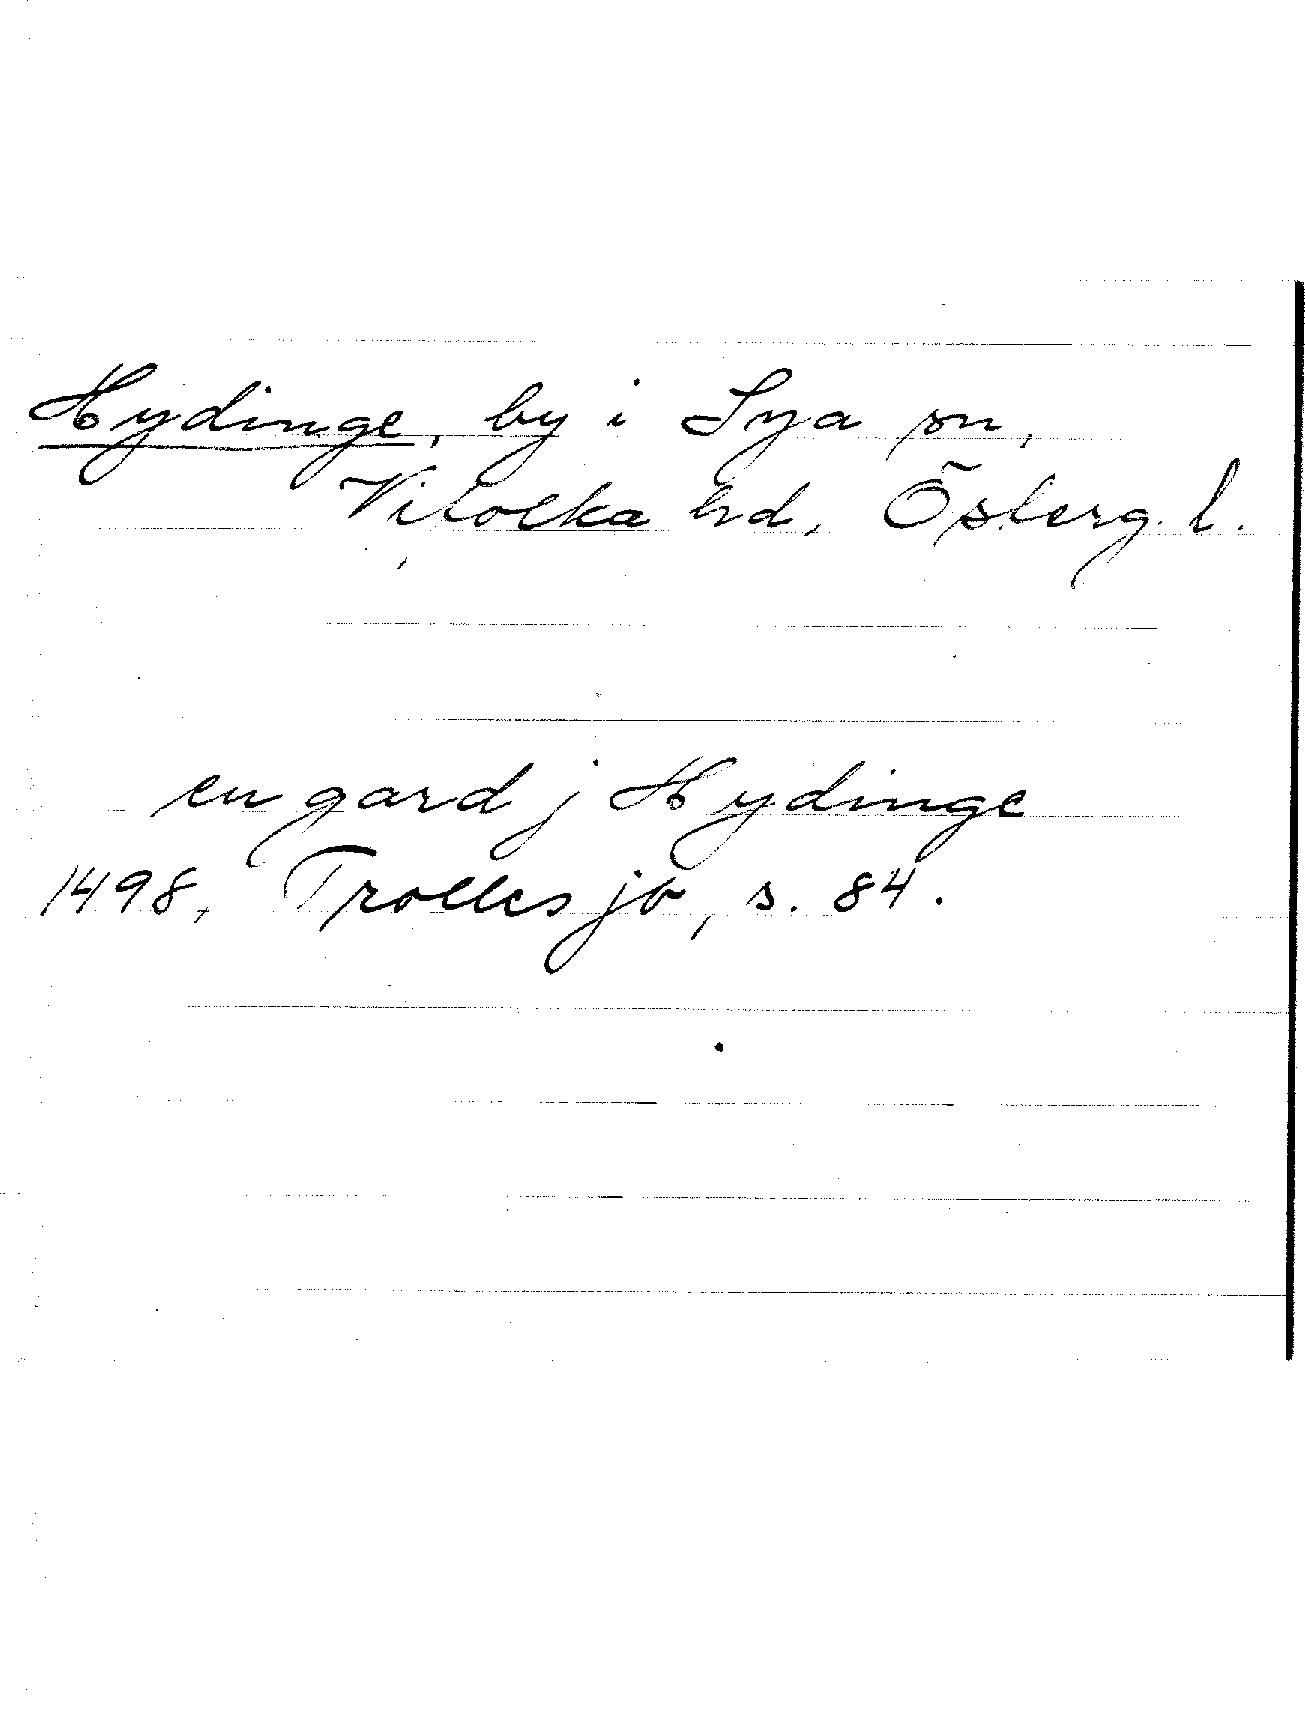 Hydinge, by i Sya sn,
Vifolka hd, Österg. l.
en gard j Hydinge
1498, Trolles jb, s. 84.